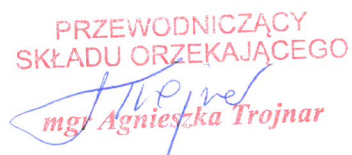 PRZEWODNICZĄCY
SKŁADU ORZEKAJĄCEGO
Trojnar
mgr Agnieszka Trojnar